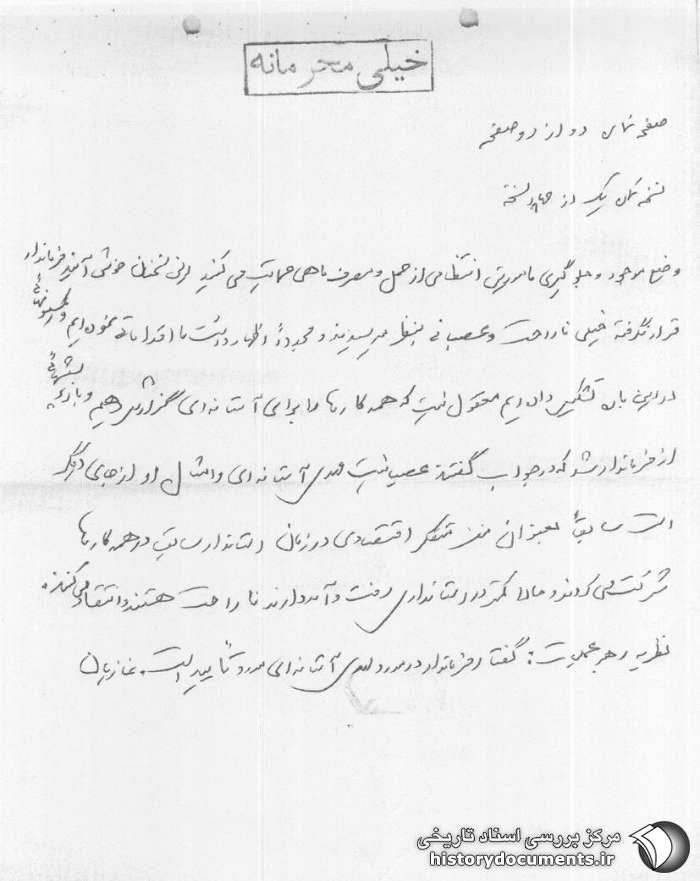 خیلی محرمانه
صفحه شماره دو از دو صفحه
نسخه شماره یک از نسخه
وضع موجود و جلوگیری مامورین انتظامی از حمل و مصرف ماهی حمایت می کنید این سخنان خوش آیند فرماندار
قرار نگرفته خیلی ناراحت و عصبانی بنظر میرسیدند و مجدداً اظهار داشت ما اقداماتی نموده ایم و کمیسیونهائی
در این باره تشکیل داده ایم معقول نیست که همه کارها را برای آستانه ای گزارش دهیم
از فرماندار که در جواب گفتند عصبانیت مهدی آستانه ای و امثال او از جای دیگر
است سابقاً بعنوان مغز متفکر اقتصادی در زمان استاندار سابق در همه کارها
شرکت می کردند و حالا کمتر در استانداری رفت و آمد دارند ناراحت هستند و انتقاد می کنند.
نظریه رهبر عملیات: گفتار فرماندار در مورد مهدی آستانه ای مورد تأیید است. غازیان
مرکز بررسی اسناد تاریخی
historydocuments.ir